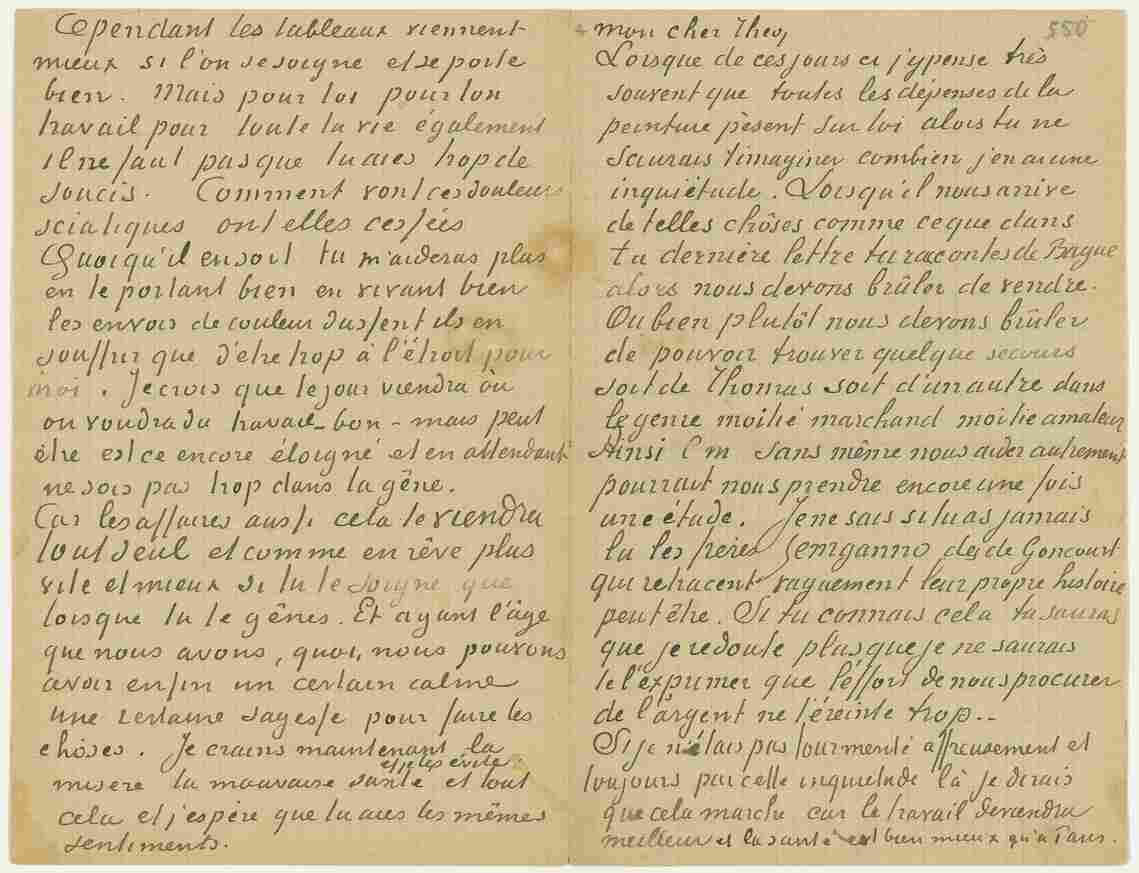 Cependant les tableaux viennent
mieux si l'on se soigne et se porte
bien. Mais pour toi pour ton
travail pour toute ta vie également
il ne faut pas que tu aies trop de
soucis. Comment vont ces douleurs
sciatiques ont elles cessées
Quoiqu'il en soit tu m'aideras plus
en te portant bien en vivant bien
les envois de couleur dussent ils en
souffrir que d'etre trop à l'étroit pour
moi. Je crois que le jour viendra où
on voudra du travail – bon – mais peut
être est ce encore éloigné et en attendant
ne sois pas trop dans la gêne.
Car les affaires aussi cela te viendra
tout seul et comme en rêve plus
vite et mieux si tu te soigne que
lorsque tu te gênes. Et ayant l'âge
que nous avons, quoi, nous pouvons
avoir enfin un certain calme
une certaine sagesse pour faire les
choses. Je crains maintenant la
et je les évite
misère la mauvaise santé et tout
cela et j'espère que tu aies les mêmes
sentiments.
mon cher Theo, 550
Lorsque de ces jours ci j'y pense très
souvent que toutes les dépenses de la
peinture pèsent sur toi alors tu ne
saurais t'imaginer combien j'en ai une
inquiétude. Lorsqu'il nous arrive
de telles chôses comme ce que dans
ta dernière lettre tu racontes de Bague
alors nous devons brûler de vendre.
Ou bien plutôt nous devons brûler
de pouvoir trouver quelque secours
soit de Thomas soit d'un autre dans
le genre moitié marchand moitie amateur
Ainsi C m sans même nous aider autrement
pourrait nous prendre encore une fois
une étude. Je ne sais si tu as jamais
lu les frères Zemganno des de Goncourt
qui retracent vaguement leur propre histoire
peutêtre. Si tu connais cela tu sauras
que je redoute plus que je ne saurais
te l'exprimer que l'effort de nous procurer
de l'argent ne t'éreinte trop..
Si je n'étais pas tourmenté affreusement et
toujours par celle inquietude là je dirais
que cela marche car le travail deviendra
meilleur et la santé est bien mieux qu'à Paris.